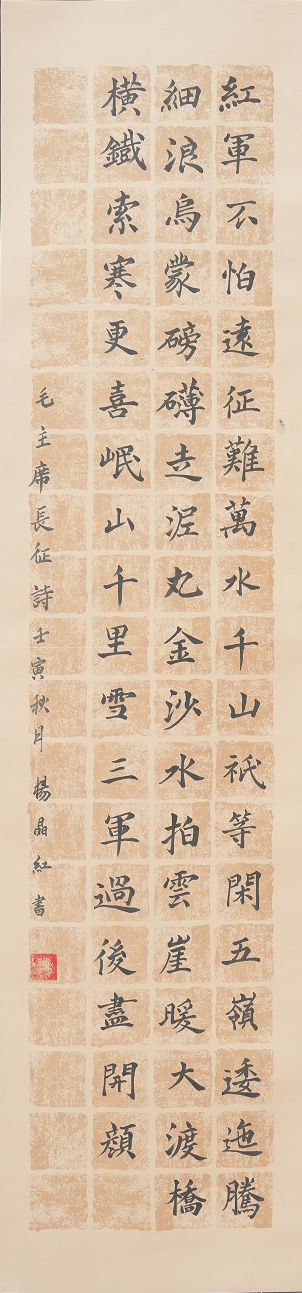 紅軍不怕遠征難萬水千山祇等閑五嶺逶迤騰
細浪烏蒙磅礴走泥丸金沙水拍雲崖暖大渡橋
橫鐵索寒更喜岷山千里雪三軍過後盡開顏
毛主席長征詩壬寅秋月楊晶紅書